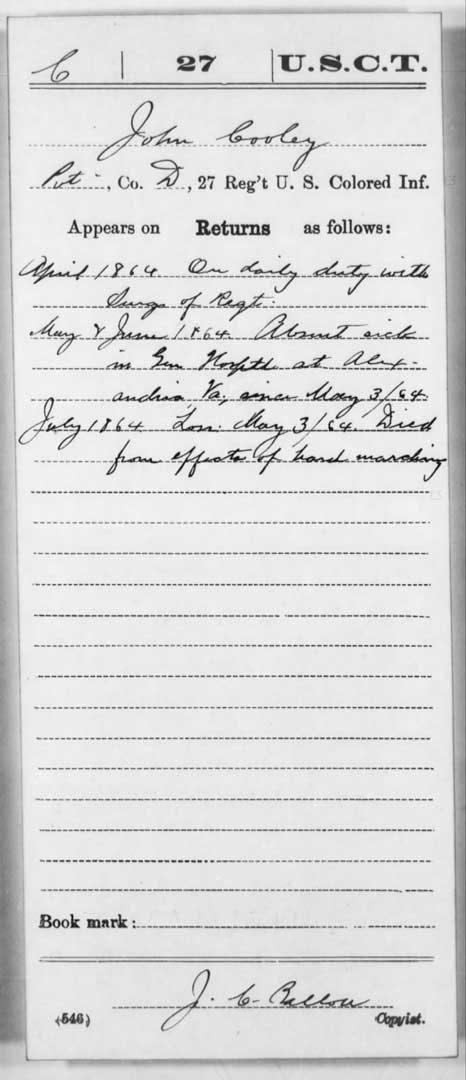 C | 27 | U.S.C.T.
John Cooley
Pvt, Co. D, 27 Reg't U. S. Colored Inf.
Appears on Returns as follows:
April 1864 On daily duty with
Surg of Regt.
May & June 1864. Absent sick
in Gen Hosptl at Alex-
andria, Va, since May 3/64.
July 1864 Loss: May 3/64. Died
from effects of hard marching
Book mark:
J. C. Ballou
(546) Copyist.